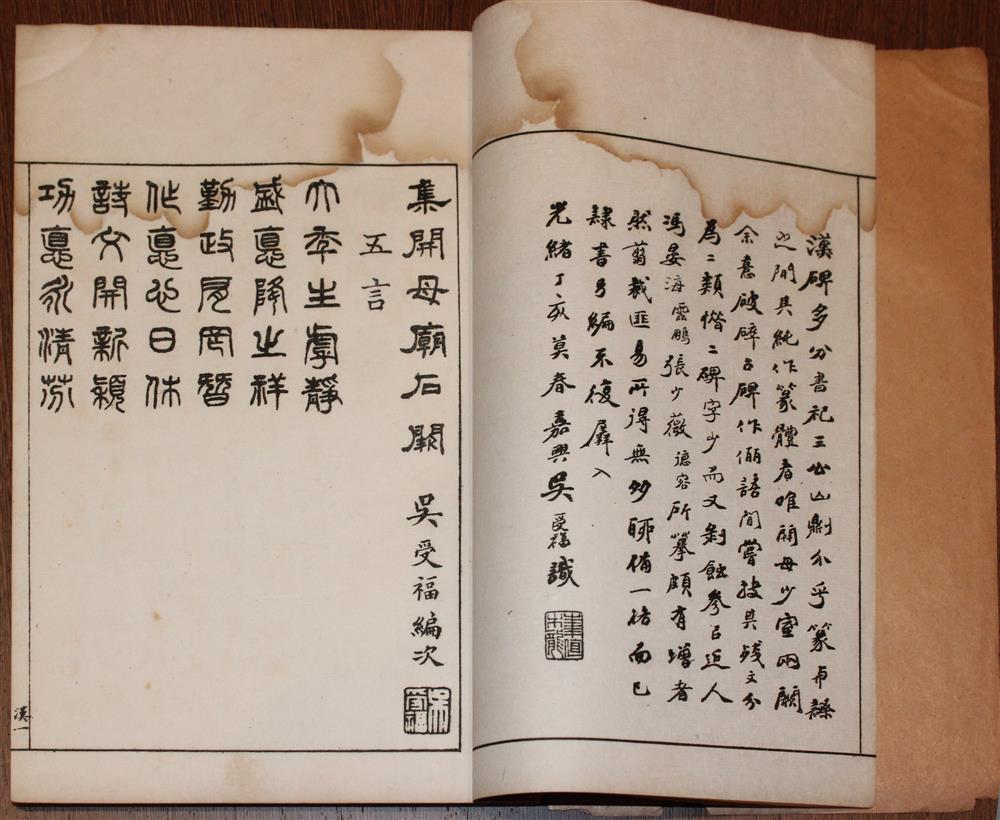 漢碑多分書祀三公山劇介乎篆与隸
之間其純作篆體者唯開母少室兩闕
余憙破碎古碑作儷語間嘗披其殘文分
為二類惜二碑字少而又剝蝕參以近人
馮晏海雲鵬張少薇德容所摹頗有增者
然翦裁匪易所得無多聊備一格而已
隸書另編不復羼入
光緒丁亥莫春嘉興吳受福識
集開母廟石闕 吳受福編次
五言
大年生虖靜
盛悳降之祥
勤政民罔替
作悳心日休
詩文開新穎
功悳永清芬
漢一